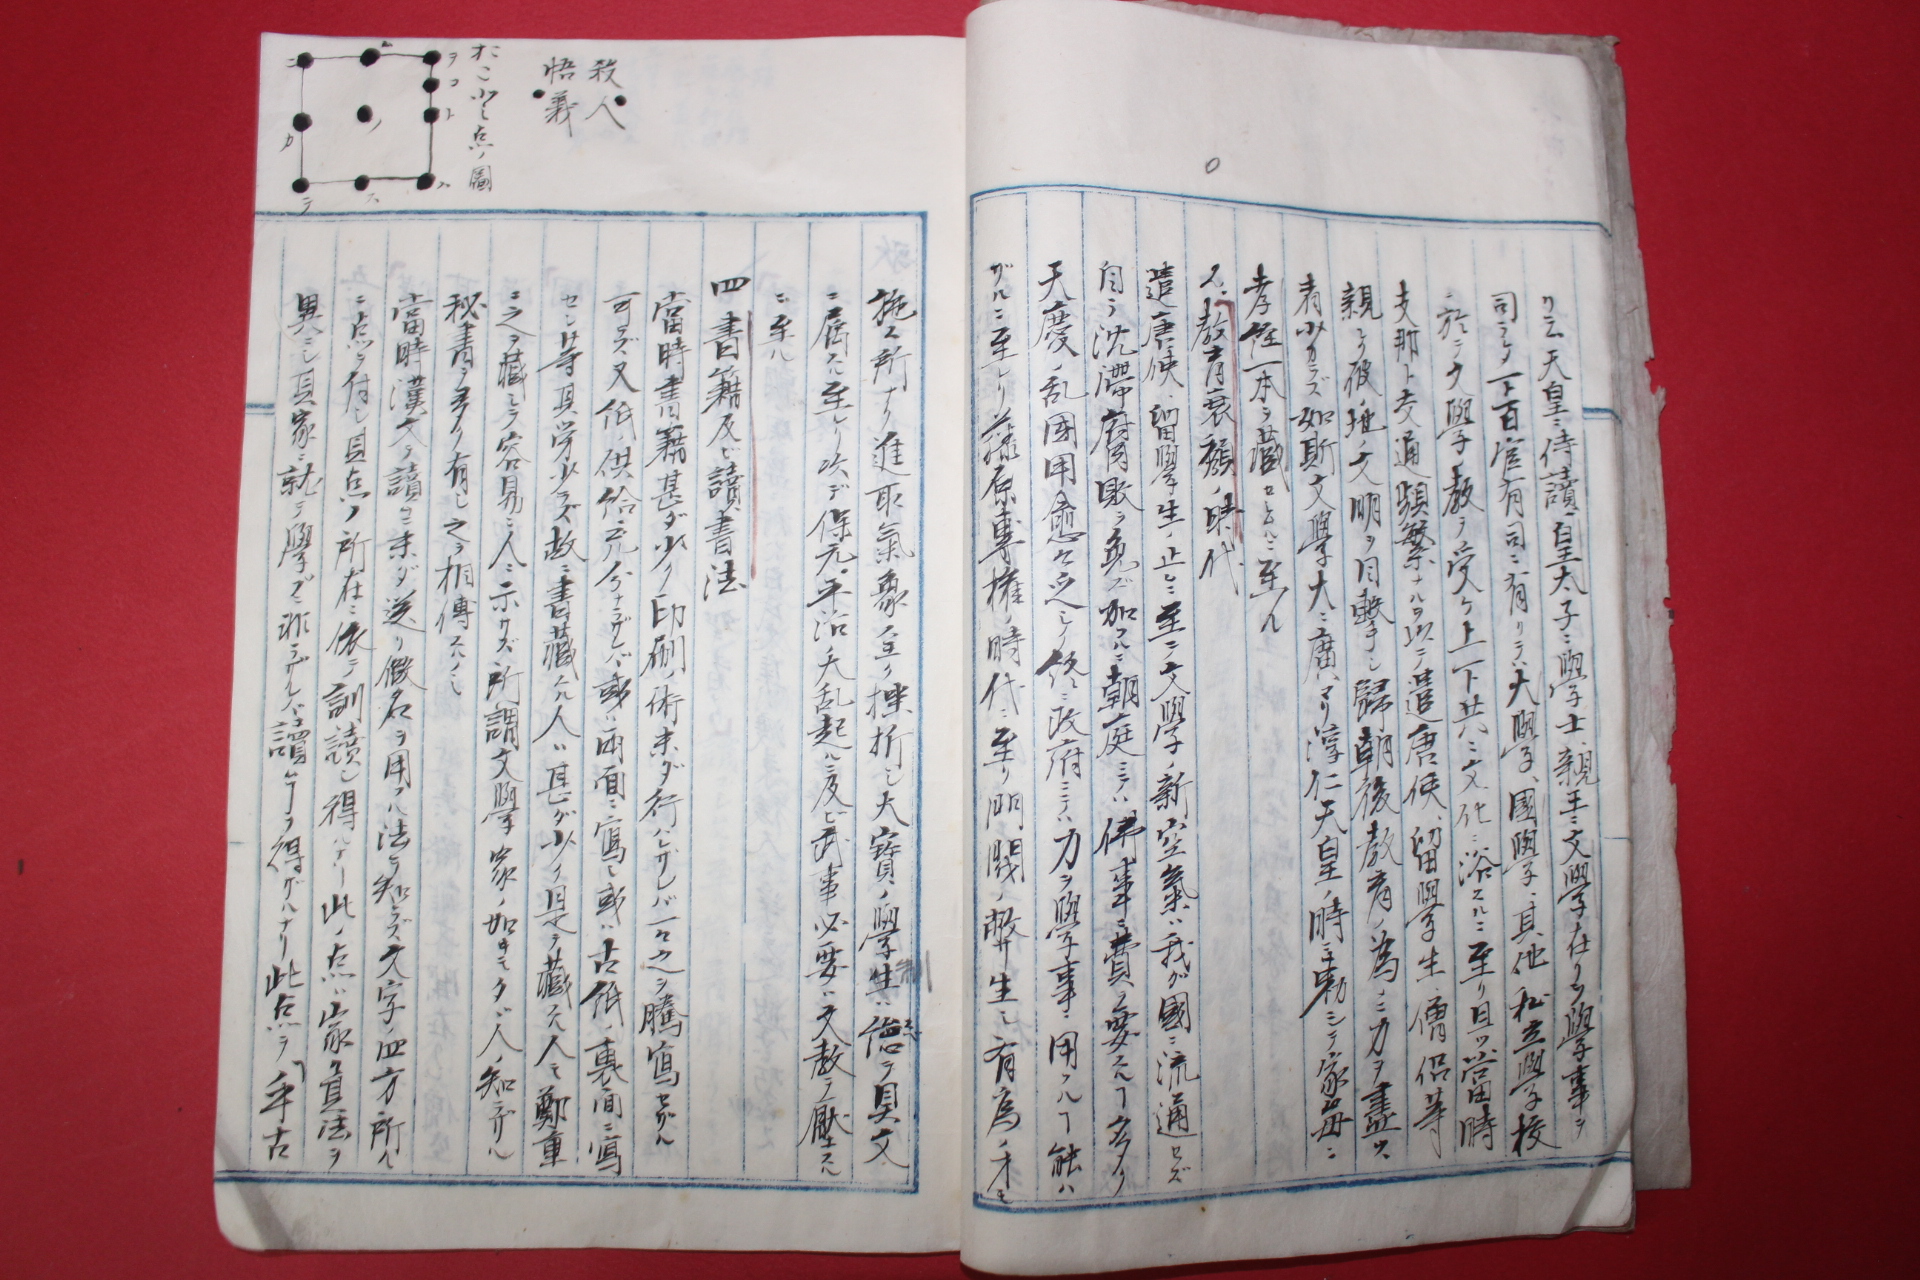 リ云天皇ニ侍讀皇太子ニ學士親王ニ文學在リテ學事ヲ
司ラシメ下百官有司ニ有リテハ大學、國學、其他私立學校
ニ於テ文學ノ教ヲ受ケ上下共ニ文化ニ浴スルニ至リ且ツ當時
支那ト交通頻繁ナルヲ以テ遣唐使、留學生、僧侶等
親シク彼ノ地ノ文明ヲ目撃シ歸朝後教育ノ為ニ力ヲ盡ス
者少カラズ如斯文學大ニ廣マリ淳仁天皇ノ時ニ勅シテ家毎ニ
孝經一本ヲ藏セシムルニ至ル
又、教育衰頽ノ時代
遣唐使、留學生ノ止ムニ至テ文學ノ新空氣ハ我ガ國ニ流通セズ
自ラ沈滞腐敗ヲ免レズ加フルニ朝庭ニテハ佛事ニ費ヲ要スルコト多ク
天慶ノ乱國用愈々乏シク終ニ政府ニテハ力ヲ學事ニ用フルコト能ハ
ザルニ至レリ藤原専權ノ時代ニ至リ門閥ノ弊生シ有為ノ才モ
施ス所ナク進取氣象全ク挫折シ大寶ノ學生ハ倦テ其文
ニ屬スルニ至レリ次デ保元平治ノ大乱起ルニ及ビ武事必要ハ文教ヲ壓スル
ニ至ル
四 書籍及ビ讀書法
當時書籍甚ダ少ク印刷ノ術未ダ行ハレザレバ一々之ヲ騰寫セザル
可ラズ又紙ノ供給充分ナラザレバ或ハ両面ニ寫シ或ハ古紙ノ裏面ニ寫
セシ等其労少ラズ故ニ書藏スル人ハ甚ダ少ク是ヲ藏スル人モ鄭重
ニ之ヲ藏シテ容易ニ人ニ示サズ所謂文學家ノ如キモタダ人ノ知ラザル
秘書ヲ多ク有シ之ヲ相傳スルノミ
當時漢文ヲ讀ムニ未ダ送リ假名ヲ用フル法ヲ知ラズ文字ノ四方所々
ニ点ヲ付シ其点ノ所在ニ依テ訓讀シ得ルナリ此ノ点ハ家々其法ヲ
異ニシ其家ニ就テ學ブニ非ラザレバ讀ムコトヲ得ザルナリ此点ヲ「乎古
殺人
悟義
おこと点ノ圖
ヲ
コ
ト
ハ
ニ
カ
ノ
テ
ス